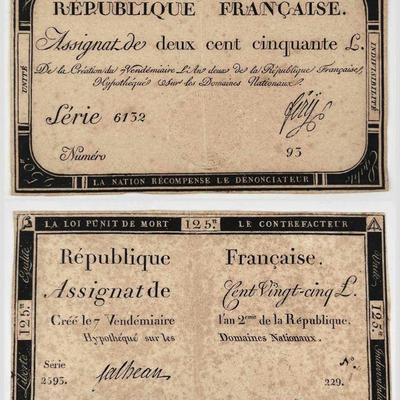 RÉPUBLIQUE FRANÇAISE.
Assignat de deux cent cinquante L.
De la Création du 7 Vendémiaire L'An deux de la République Française,
Hypothéqué sur les Domaines Nationaux.
Série 6132
Numéro 93
UNITÉ
INDIVISIBILITÉ
LA NATION RÉCOMPENSE LE DÉNONCIATEUR
LA LOI PUNIT DE MORT 125.tt LE CONTREFACTEUR
République Française.
Assignat de Cent Vingt-cinq L.
Créé le 7 Vendémiaire l'an 2.eme de la République.
Hypothéqué sur les Domaines Nationaux.
Série N.o
2593. 229.
Egalité
Liberté 125.tt
Unité
125.tt